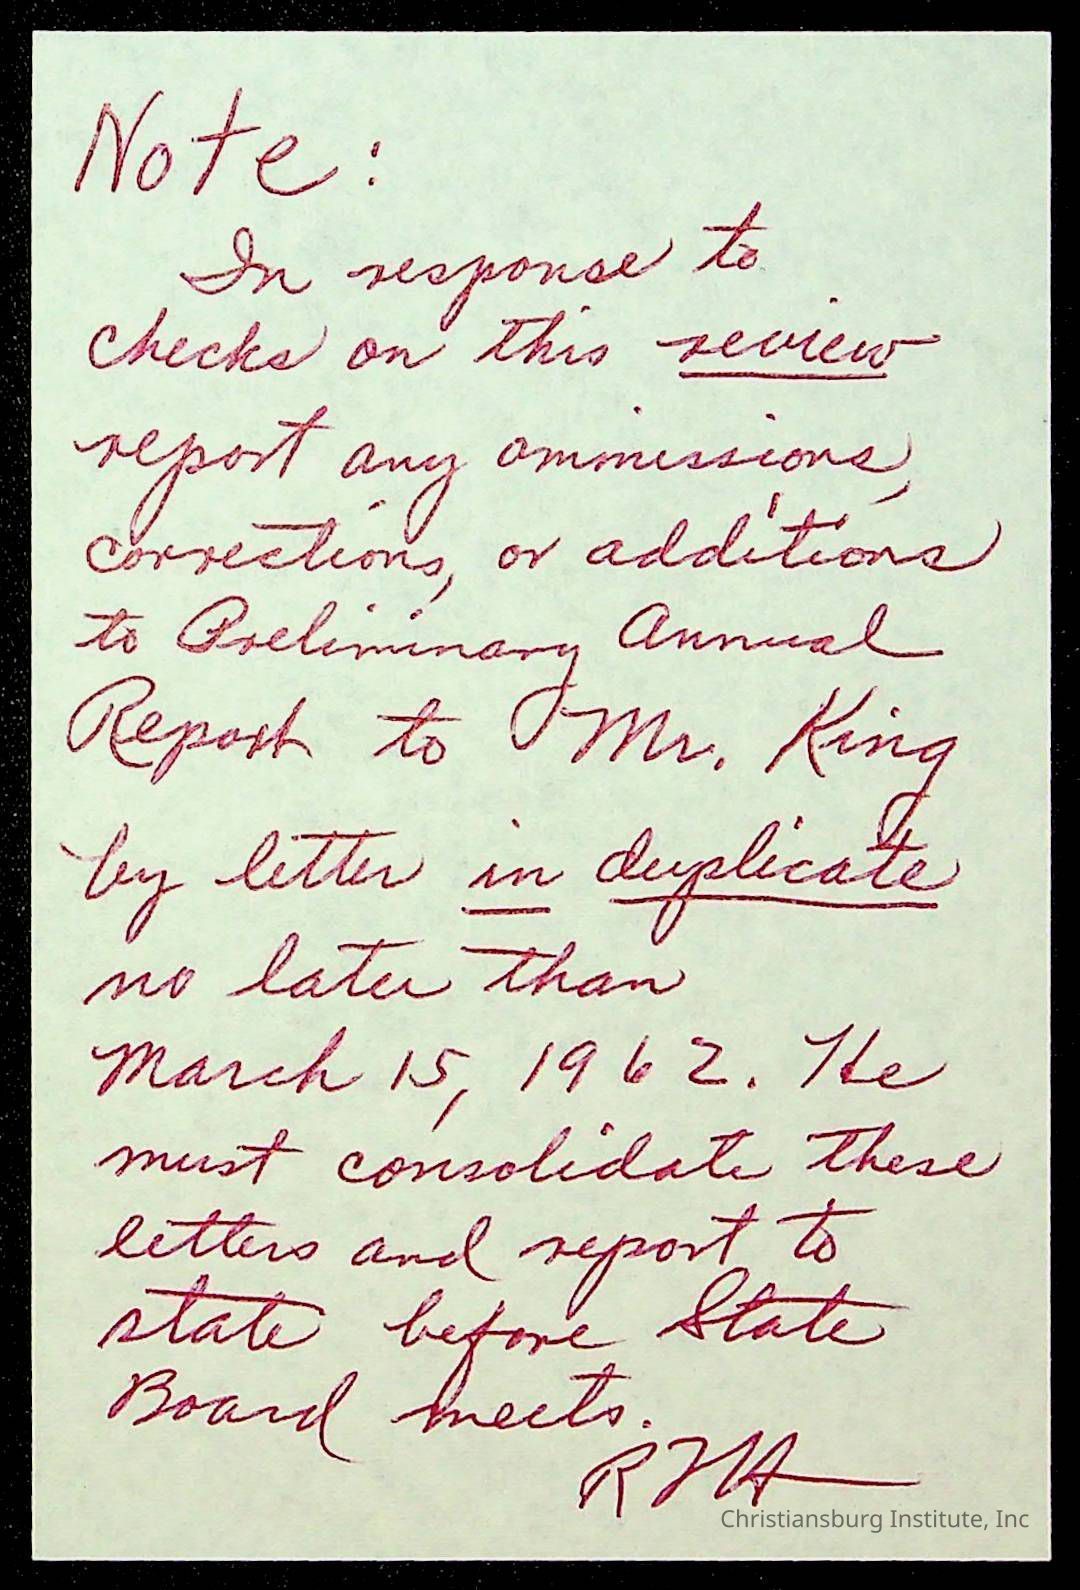 Note:
In response to
checks on this review
report any ommissions,
corrections, or additions
to Preliminary Annual
Report to Mr. King
by letter in duplicate
no later than
March 15, 1962. He
must consolidate these
letters and report to
state before State
Board meets.
Christiansburg Institute, Inc